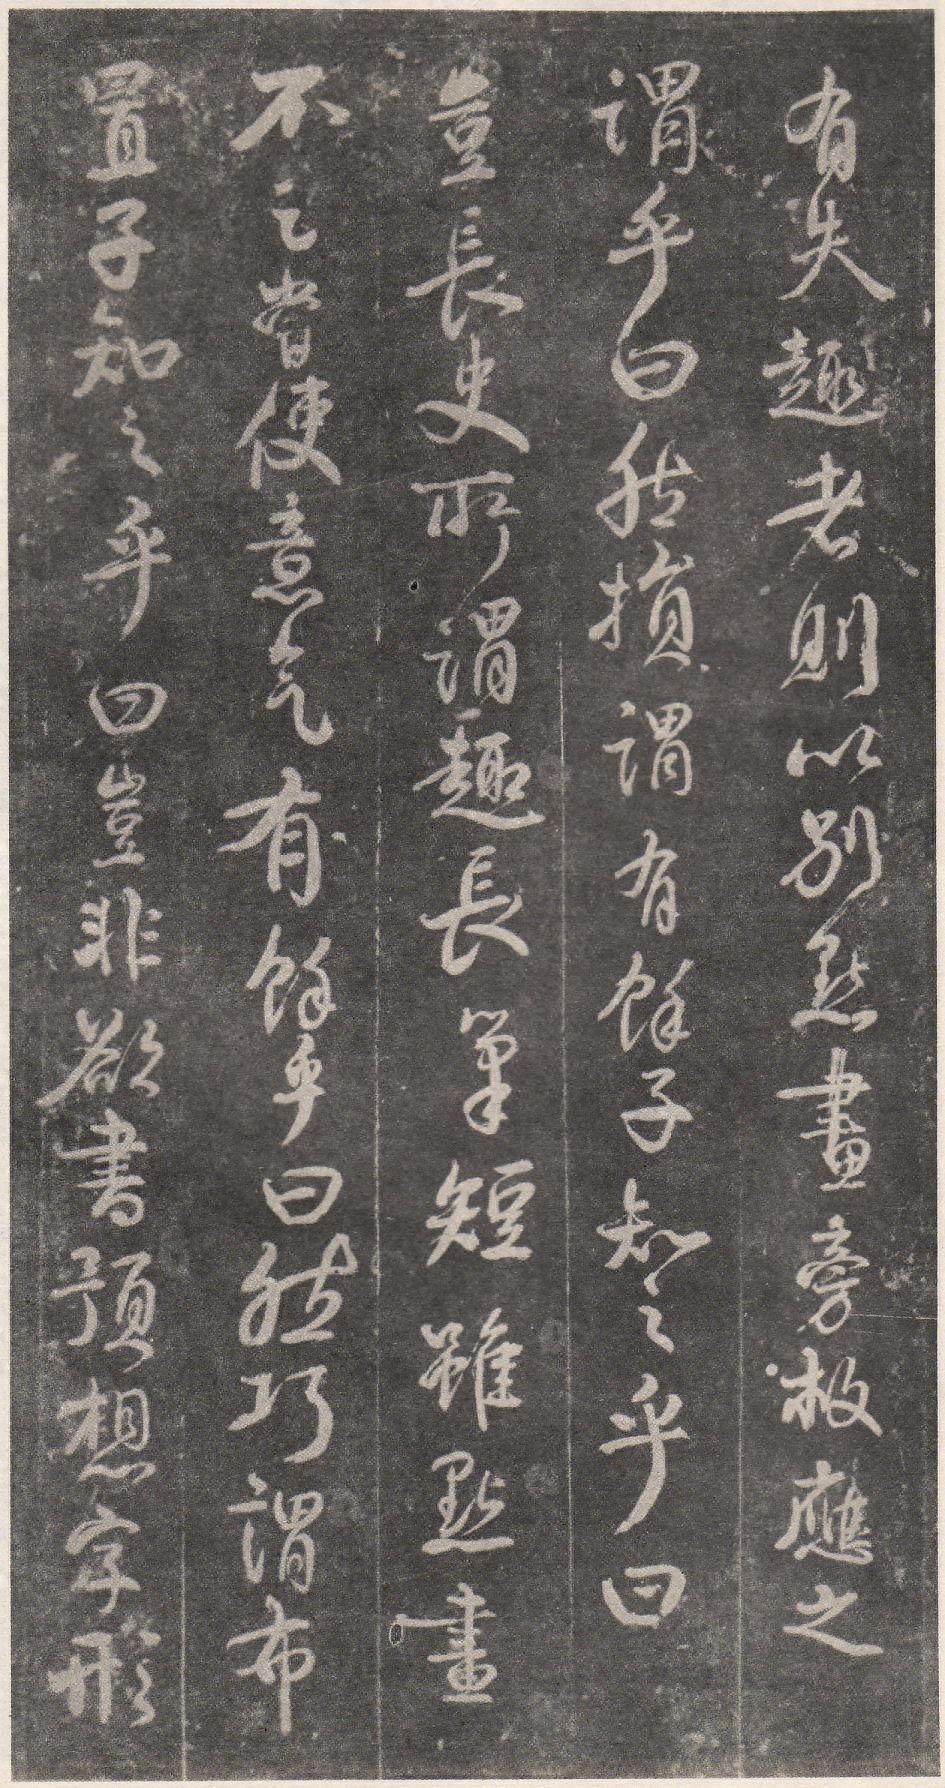 有失趣者則以別點畫旁救應之
謂乎曰然損謂有餘子知之乎曰
豈長史所謂趣長筆短雖點畫
不足常使意气有餘乎曰然巧謂布
置子知之乎曰豈非欲書預想字形